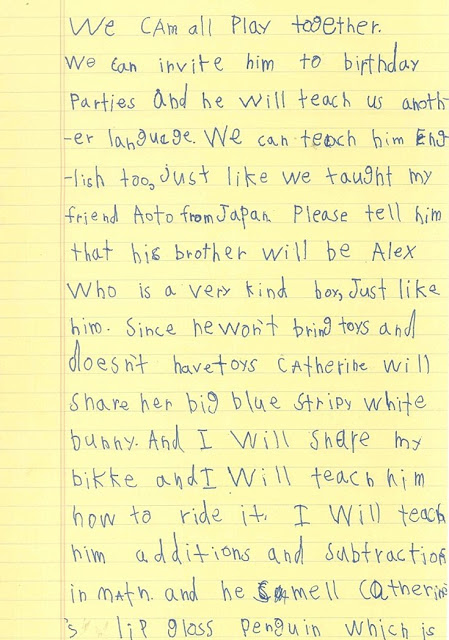 We CAm all Play together.
We can invite him to birthday
Parties And he will teach us anoth-
-er language. We can teach him Eng
-lish too, Just like we taught my
friend Aoto from Japan. Please tell him
that his brother will be Alex
Who is a very kind boy, Just like
him. Since he won't bring toys and
doesn't have toys CAtherine will
Share her big blue Stripy white
bunny. And I Will share my
bikke and I Will teach him
how to ride it. I Will teach
him additions and subtraction
in mAth. and he smell CAtherine
's lip gloss Penguin which is